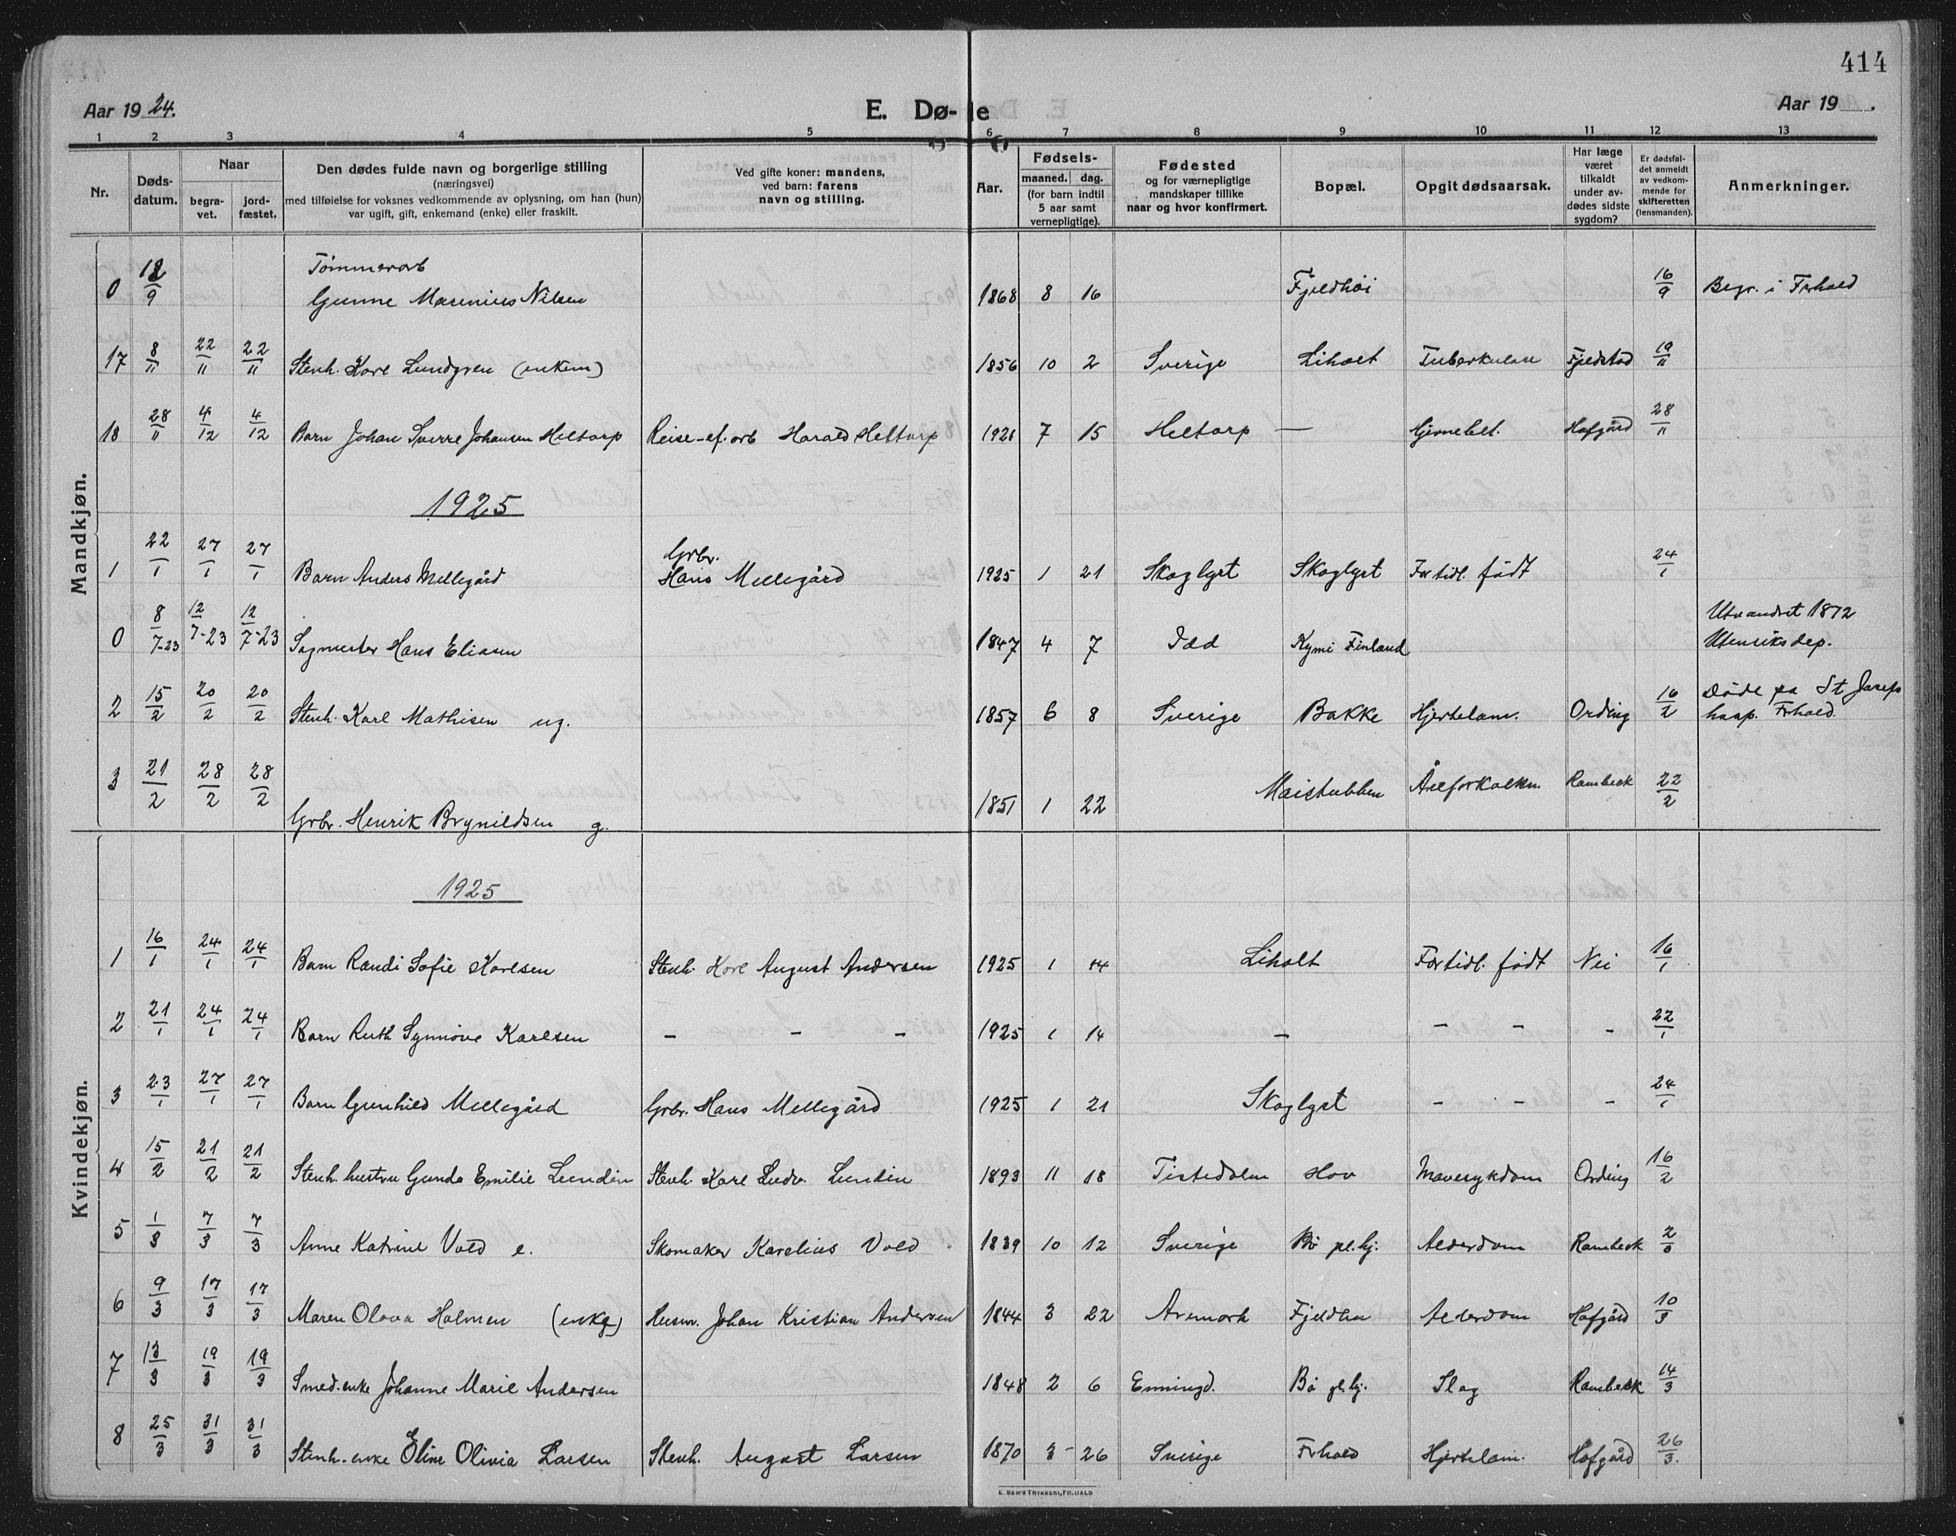 414
Aar 1924.
E. Dø-de
Aar 19 .
1 2 3 4 5 6 7 8 9 10 11 12 13
Nr.
Døds-datum.
Naar
begra-vet.
jord-fæstet.
Den dødes fulde navn og borgerlige stilling
(næringsvei)
med tilføielse for voksnes vedkommende av oplysning, om han (hun)
var ugift, gift, enkemand (enke) eller fraskilt.
Ved gifte koner: mandens,
ved barn: farens
navn og stilling.
Aar.
Fødsels-
maaned. dag.
(for barn indtil
5 aar samt
vernepligtige).
Fødested
og for værnepligtige
mandskaper tillike
naar og hvor konfirmert.
Bopæl.
Opgit dødsaarsak.
Har læge
været
tilkaldt
under av-
dødes sidste
sygdom?
Er dødsfal-
det anmeldt
av vedkom-
mende for
skifteretten
(lensmanden).
Anmerkninger.
Mandkjøn.
Tømmerarb
0 12/9 Gunne Marenius Nilsen 1868 8 16 Fjeldhøi 16/9 Begr. i Frhald
17 8/11 22/11 22/11 Stenh. Karl Lundgren (enkem) 1856 10 2 Sverige Liholt Tuberkulose Fjeldstad 19/11
18 28/11 4/12 4/12 Barn Johan Sverre Johansen Heltorp Reise-ef.arb Harald Heltorp 1921 7 15 Heltorp — Hjernebet. Hofgård 28/11
1925
1 22/1 27/1 27/1 Barn Anders Mellegård Grbr. Hans Mellegård 1925 1 21 Skoglyst Skoglyst For tidl. født 24/1
0 8/7-23 12/7-23 12/7-23 Sagmester Hans Eliasen 1847 4 7 Idd Kymi Finland Utvandret 1872
Utenriksdep.
2 15/2 20/2 20/2 Stenh. Karl Mathisen ug. 1857 6 8 Sverige Bakke Hjertelam. Ording 16/2 Døde pa St. Josefs
hosp. Frhald.
3 21/2 28/2 28/2 Grbr. Henrik Brynildsen g. 1851 1 22 Maistubben Åreforkalkn. Rambeck 22/2
Kvindekjøn.
1925
1 16/1 24/1 24/1 Barn Randi Sofie Karlsen Stenh. Karl August Andersen 1925 1 14 Liholt For tidl. født Nei 16/1
2 21/1 24/1 24/1 Barn Ruth Synnøve Karlsen – – – 1925 1 14 – – – – 22/1
3 23/1 27/1 27/1 Barn Gunhild Mellegård Grbr. Hans Mellegård 1925 1 21 Skoglyst – – – 24/1
4 15/2 21/2 21/2 Stenh. hustru Gunda Emilie Lundin Stenh. Karl Ludv. Lundin 1893 11 18 Tistedalen Hov Mavesykdom Ording 16/2
5 1/3 7/3 7/3 Anne Katrine Vold e. Skomaker Karelius Vold 1839 10 12 Sverige Bø pl.hj. Alderdom Rambeck 2/3
6 9/3 17/3 17/3 Maren Olava Holmen (enke) Husm. Johan Kristian Andersen 1844 3 22 Aremark Alderdom Hofgård 10/3
7 13/3 19/3 19/3 Smed.enke Johanne Marie Andersen 1848 2 6 Enningd. Bø pl.hj. Slag Rambeck 14/3
8 25/3 31/3 31/3 Stenh.-enke Eline Olivia Larsen Stenh. August Larsen 1870 3 26 Sverige Frhald Hjertelam. Hofgård 26/3.
E. SEM'S TRYKKERI, FR.HALD